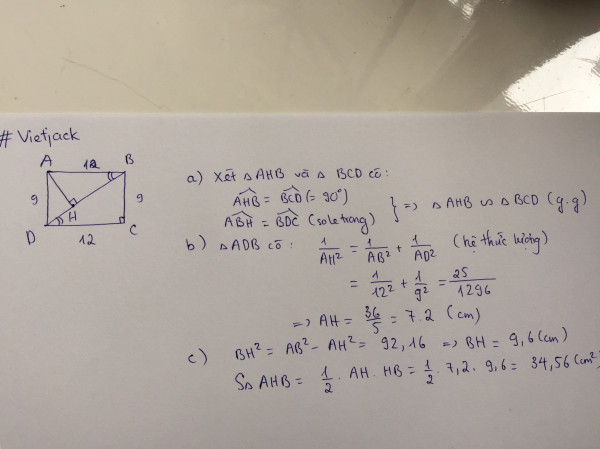 # Vietjack
A 12 B
9 H 9
D 12 C
a) Xét △AHB và △BCD có:
\widehat{AHB} = \widehat{BCD} (= 90°)
\widehat{ABH} = \widehat{BDC} (so le trong) } => △AHB ∽ △BCD (g.g)
b) △ADB có: 1/AH² = 1/AB² + 1/AD² (hệ thức lượng)
= 1/12² + 1/9² = 25/1296
=> AH = 36/5 = 7.2 (cm)
c) BH² = AB² - AH² = 92,16 => BH = 9,6 (cm)
S△AHB = 1/2 . AH . HB = 1/2 . 7,2 . 9,6 = 34,56 (cm²)